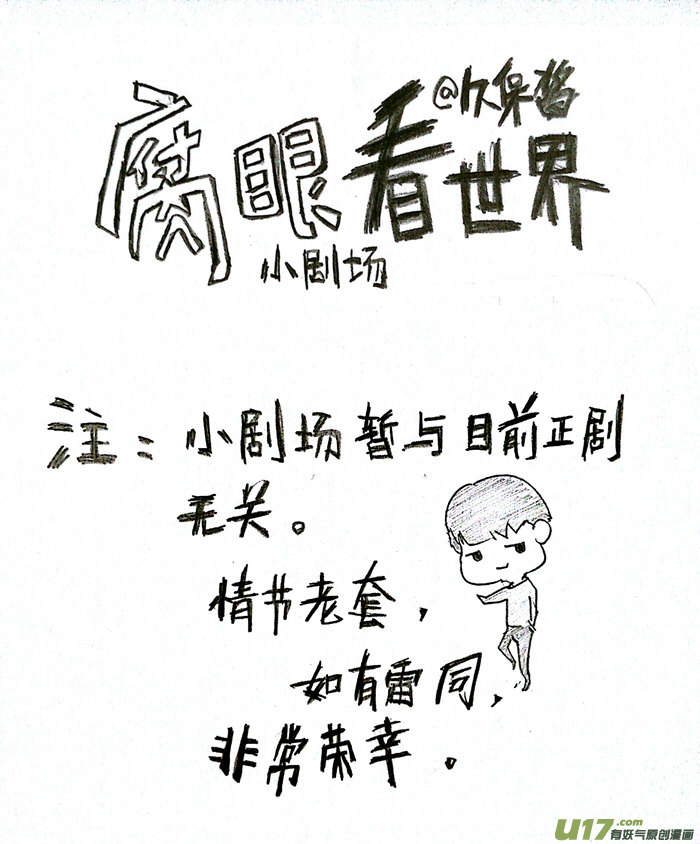 @久保哲
腐眼看世界
小剧场
注：小剧场暂与目前正剧
无关。
情节老套，
如有雷同，
非常荣幸。
U17.com
有妖气原创漫画